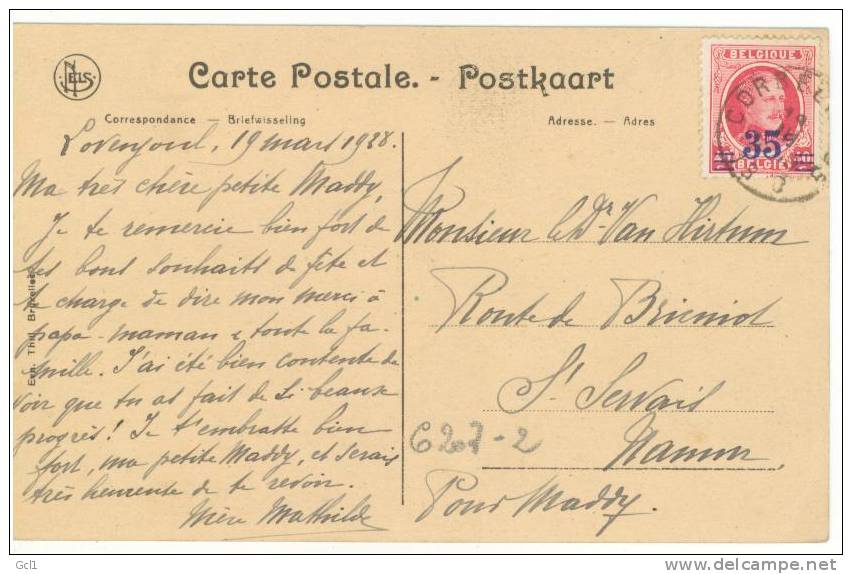 NELS
Carte Postale. - Postkaart
Correspondance — Briefwisseling
Adresse. — Adres
BELGIQUE
35
BELGIË
Lovenjoul, 19 mars 1928.
Ma très chère petite Maddy,
Je te remercie bien fort de
tes bons souhaits de fête et
te charge de dire mon merci à
papa - maman & toute la fa-
mille. J'ai été bien contente de
voir que tu as fait de si beaux
progrès! Je t'embrasse bien
fort, ma petite Maddy, et serais
très heureuse de te revoir.
Mère Mathilde
Monsieur le Dr Van Hirtum
Route de
St Servais
Namur,
Pour Maddy.
6207-2
Ern. Thill, Bruxelles
Gcl1
delcampe.net